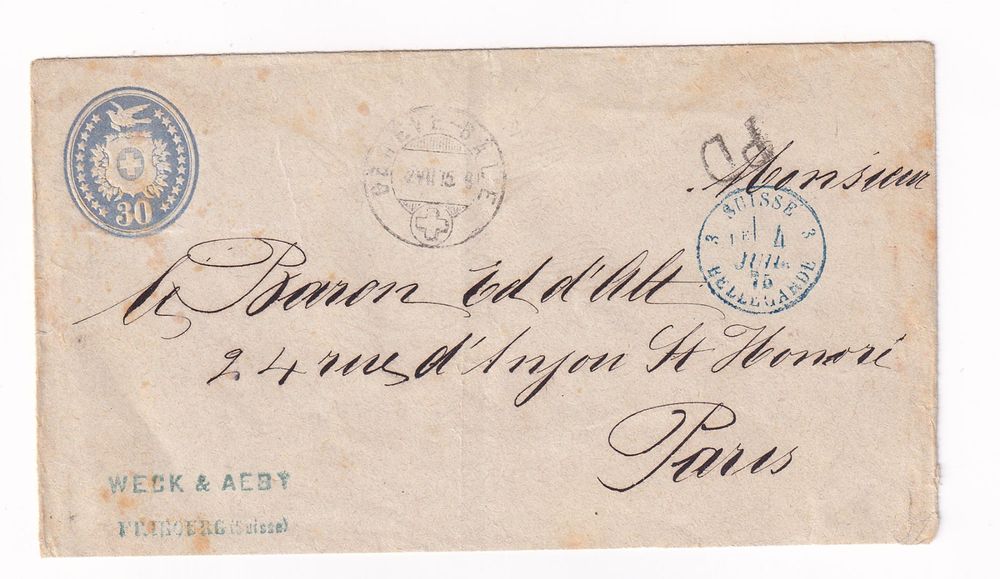 30
PD
Monsieur
SUISSE
3 3
4
JUIL
75
BELLEGARDE
le Baron Ed d'Alt
24 rue d'Anjou St Honoré
Paris
WECK & AEBY
FRIBOURG (Suisse)